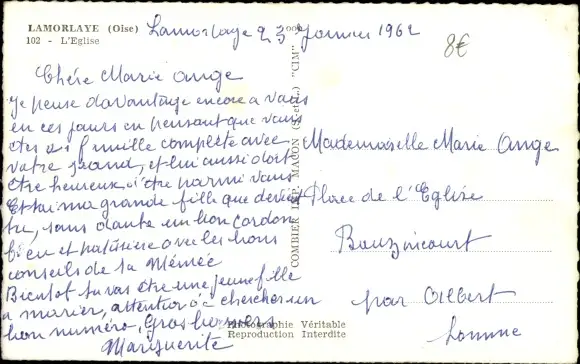 LAMORLAYE (Oise)
102 - L'Eglise
Lamorlaye 23 Janvier 1962
8€
Chére Marie Ange
Je pense davantage encore a vous
en ces jours en pensant que vous
êtes a famille complète avec
votre grand, et lui aussi doit
être heureux d'être parmi vous
Et tai ma grande fille que devient
tu, sans doute un bon cordon
bleu et patissière avec les bons
conseils de ta Mémée
Bientot tu vas être une jeune fille
a marier, attention a chercher un
bon numéro, Gros baisers
Marguerite
COMBIER IMP. MACON (S.-et-L.) "CIM"
Mademoiselle Marie Ange
Place de l'Eglise
Bouzincourt
par Albert
Somme
Photographie Véritable
Reproduction Interdite